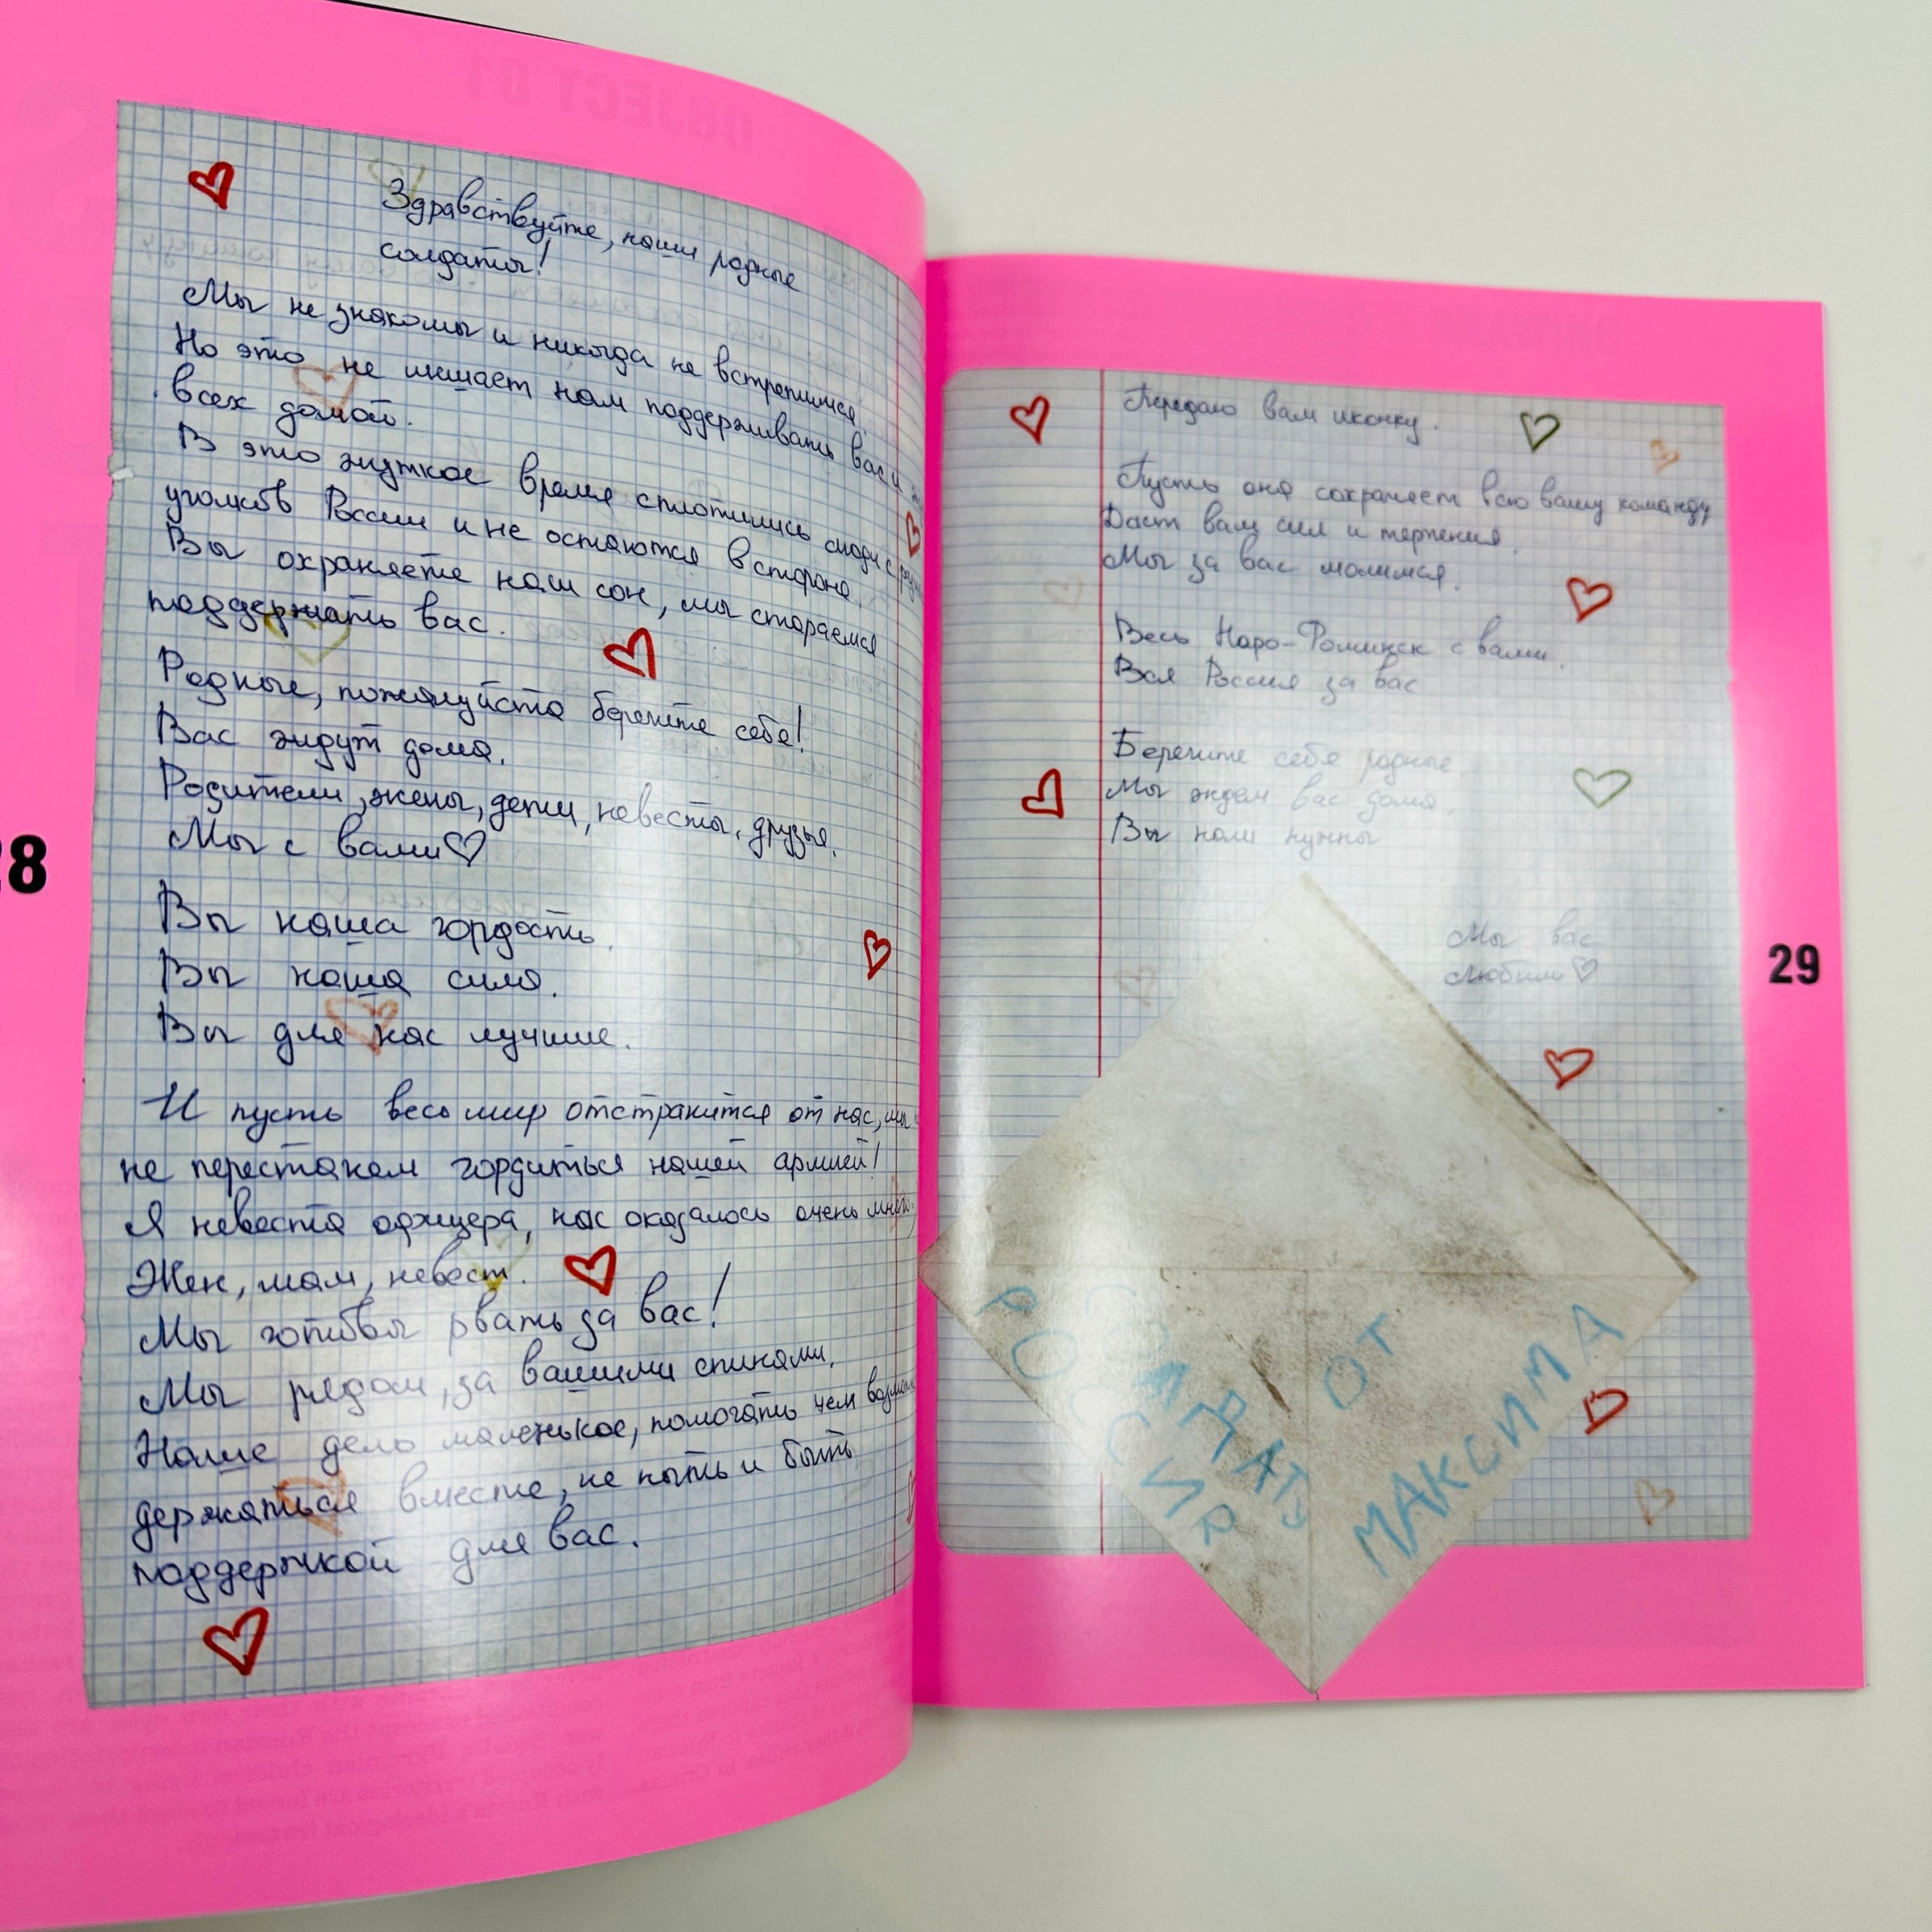 28
Здравствуйте, наши родные
солдаты!
Мы не знакомы и никогда не встретимся.
Но это не мешает нам поддерживать вас и
всех домой.
В это жуткое время сплотились люди с
уголков России и не остаются в стороне.
Вы охраняете наш сон, мы стараемся
поддержать вас.
Родные, пожалуйста берегите себя!
Вас ждут дома.
Родители, жены, дети, невесты, друзья.
Мы с вами♡
Вы наша гордость.
Вы наша сила.
Вы для нас лучшие.
И пусть весь мир отстранится от нас, мы
не перестанем гордиться нашей армией!
Я невеста офицера, нас оказалось очень много,
Жен, мам, невест.
Мы готовы рвать за вас!
Мы рядом, за вашими спинами.
Наше дело маленькое, помогать чем
держаться вместе, не ныть и быть
поддержкой для вас.
Передаю вам иконку.
Пусть она сохраняет всю вашу команду
Даст вам сил и терпения.
Мы за вас молимся.
Весь Наро-Фоминск с вами.
Вся Россия за вас
Берегите себя родные.
Мы ждем вас дома.
Вы нам нужны
Мы вас
любим♡
СОЛДАТУ
РОССИЯ
ОТ
МАКСИМА
29
OBJECT 01